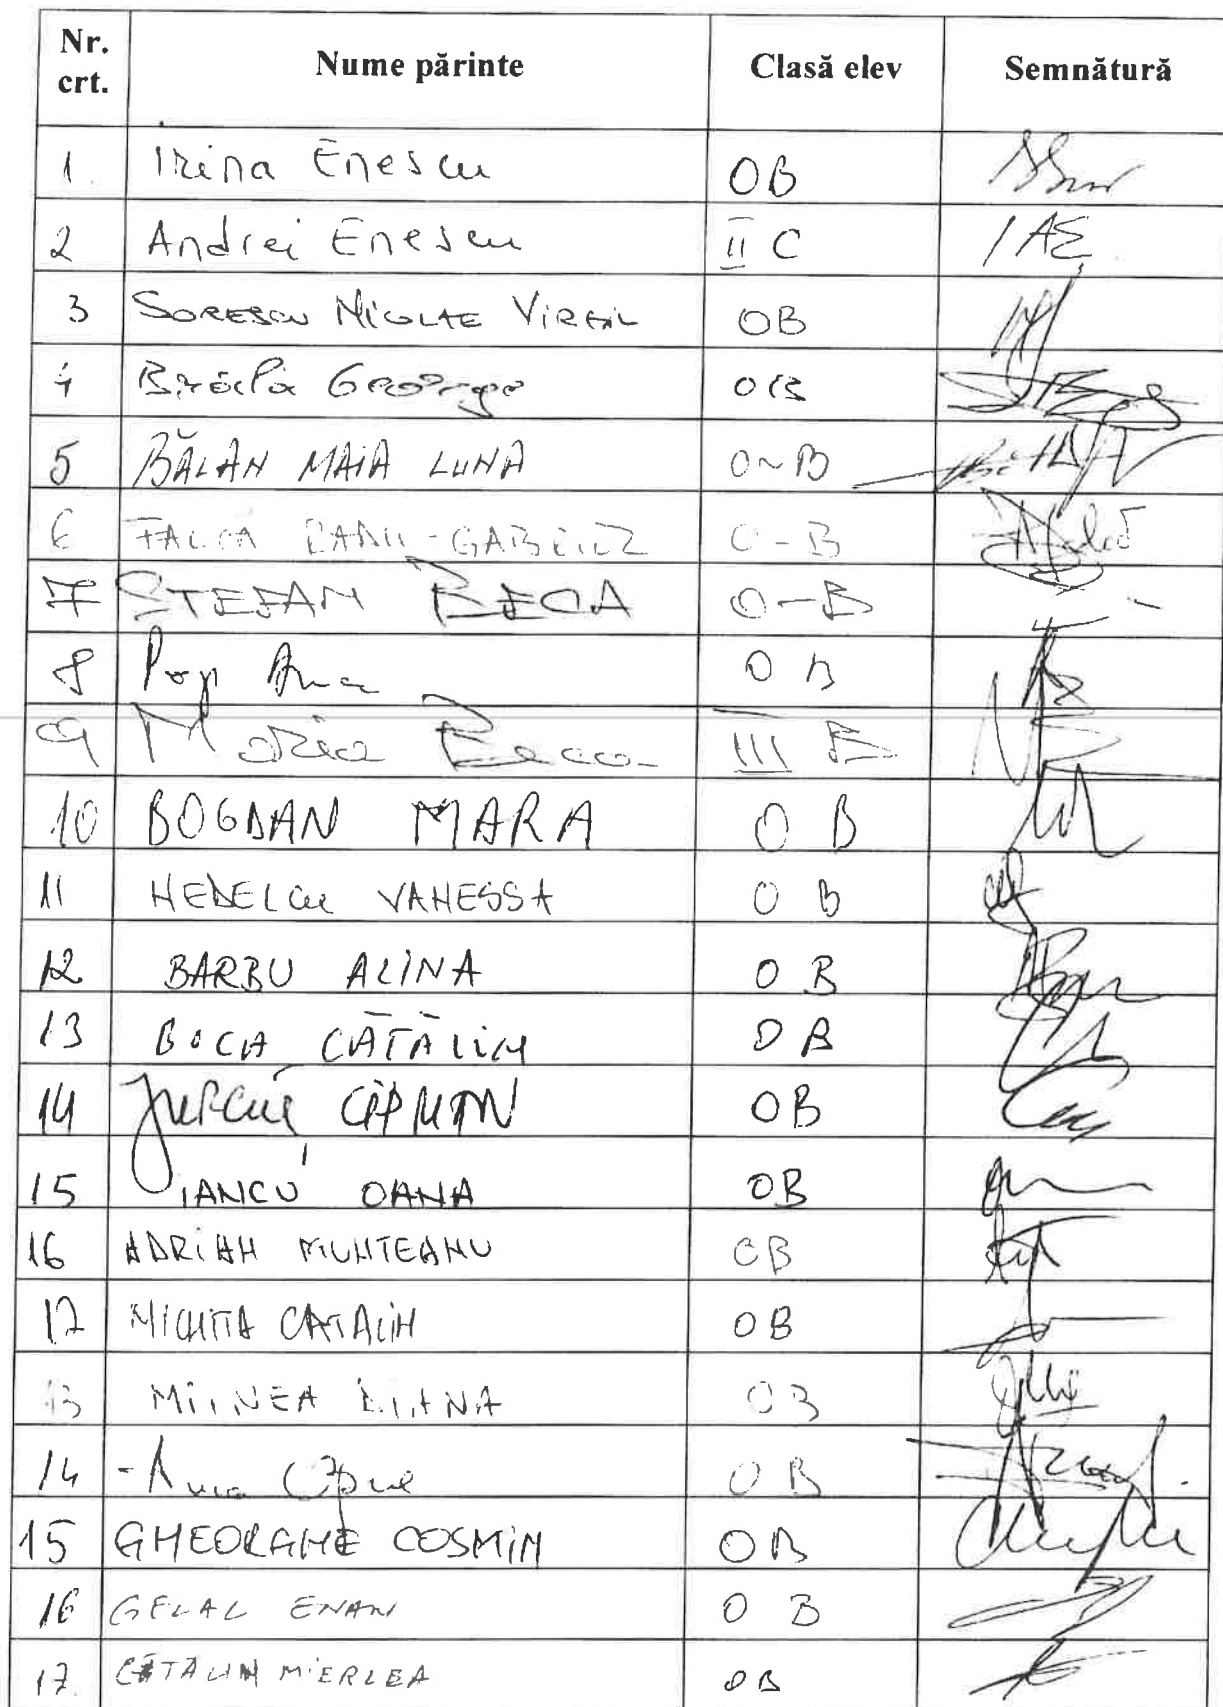 Nr. crt. Nume părinte Clasă elev Semnătură
1. Irina Enescu OB
2 Andrei Enescu II C
3 SORESCU NICOLAE VIRGIL OB
4 George OB
5 BĂLAN MAIA LUNA O~B
6 FALCĂ RADU-GABRIEL O-B
7 ȘTEFAN BECA O-B
8 Pop Ana O B
9 Maria Beca III B
10 BOGDAN MARA O B
11 NEDELCU VANESSA O B
12 BARBU ALINA O B
13 BOCA CĂTĂLIN O B
14 OB
15 IANCU OANA OB
16 ADRIAN MUNTEANU OB
17 NICHITA CATALIN OB
13 DIANA OB
14 - Ana OB
15 GHEORGHE COSMIN OB
16 GELAL ENAN O B
17. CĂTĂLIN MIERLEA OB